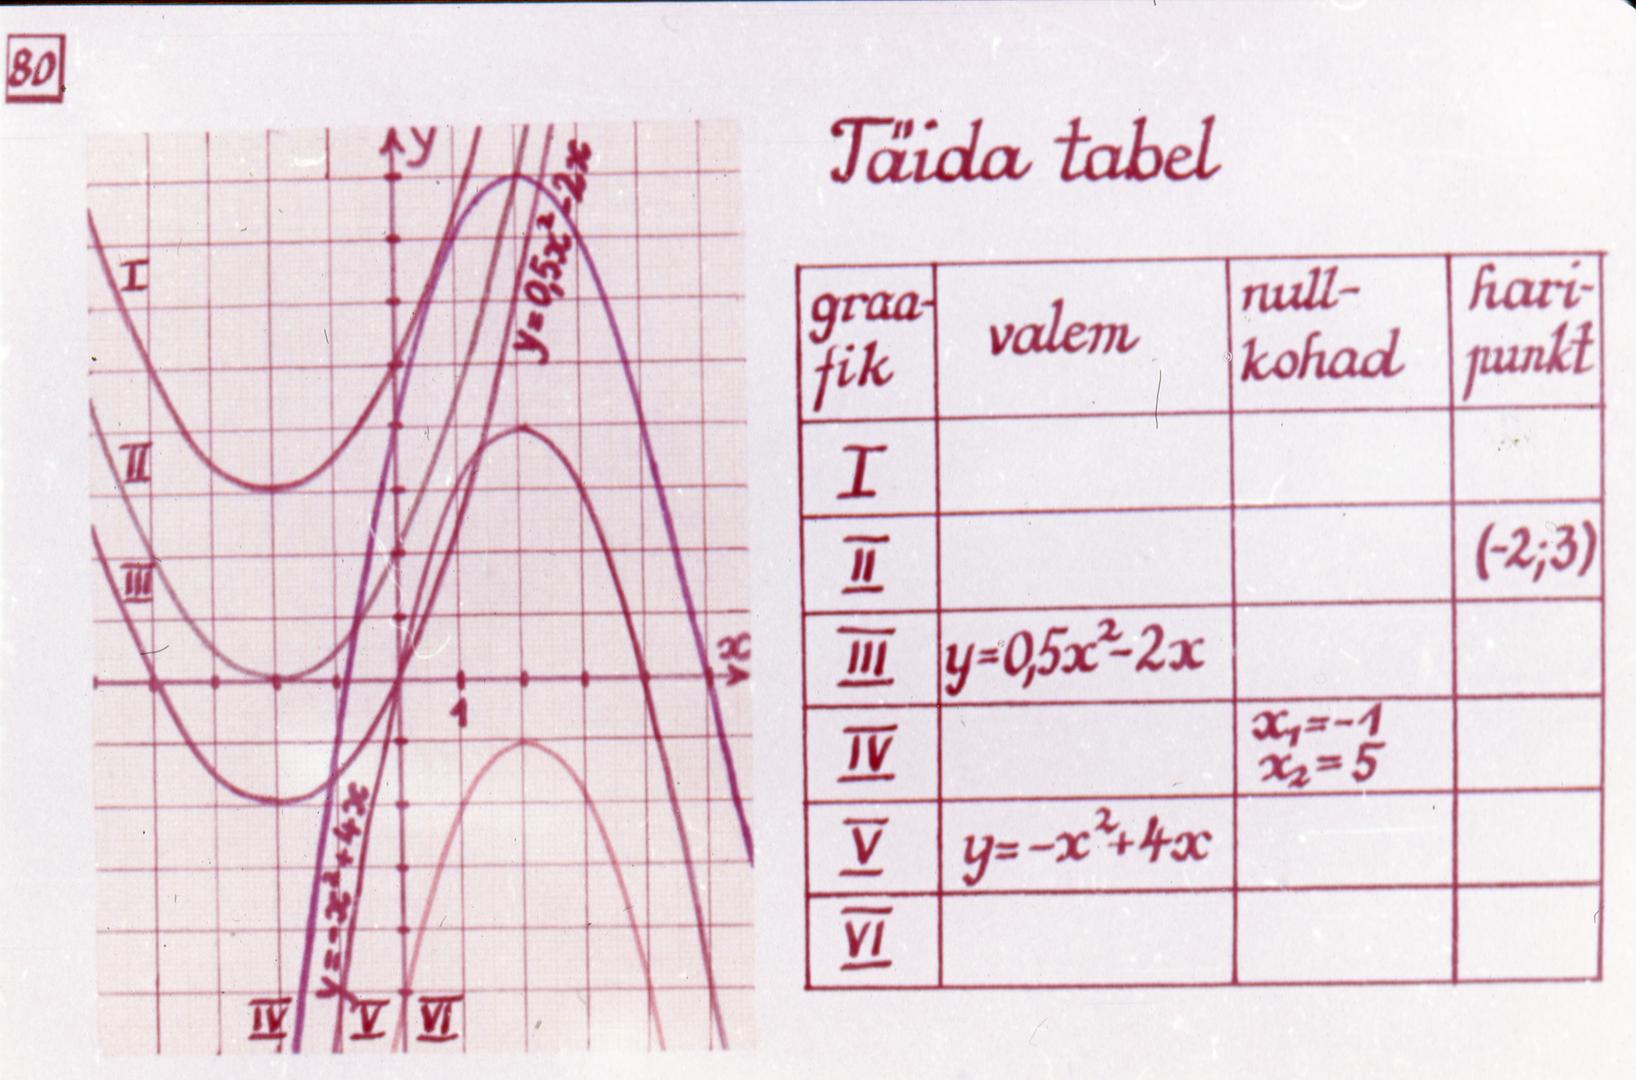 80
y
y=0,5x²-2x
I
II
III
x
1
y=-x²+4x
IV V VI
Täida tabel
graa-
fik
valem
null-
kohad
hari-
punkt
I
II
(-2;3)
III
y=0,5x²-2x
IV
x₁=-1
x₂=5
V
y=-x²+4x
VI